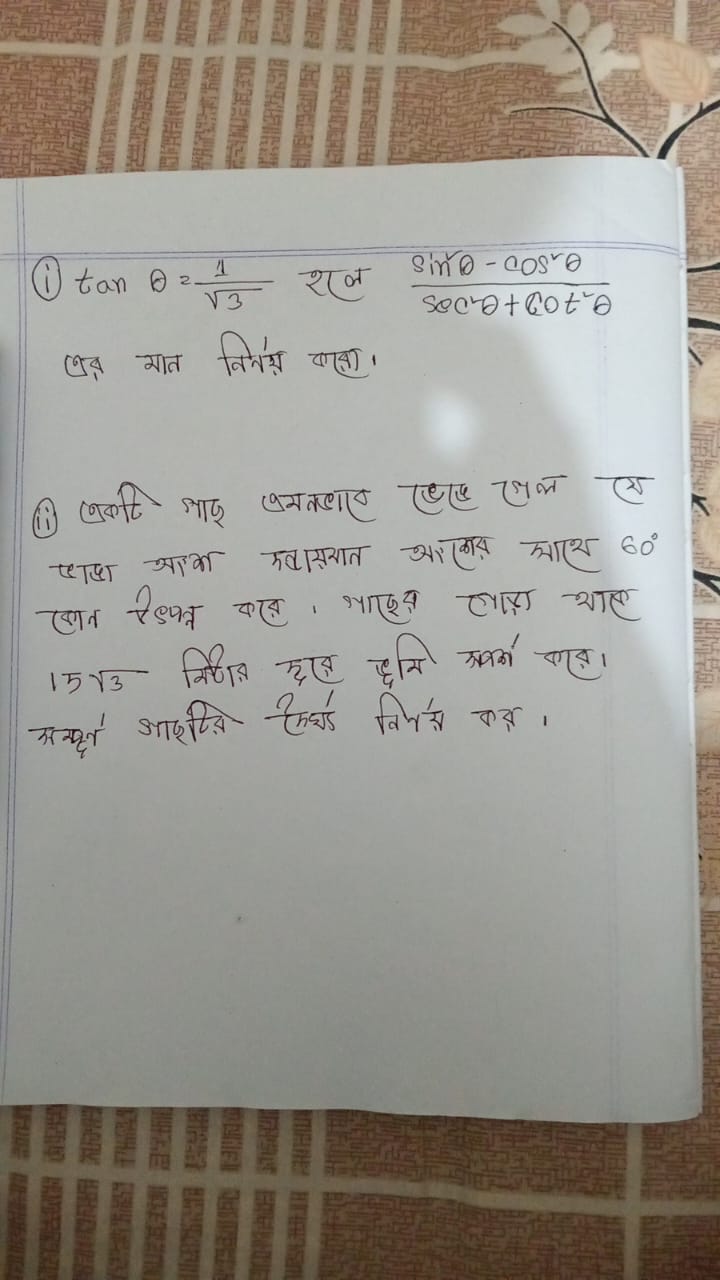 i tan θ = 1/√3 হলে (sin²θ - cos²θ)/(sec²θ + cot²θ)
এর মান নির্ণয় করো।
ii একটি গাছ এমনভাবে ভেঙে গেল যে
ভাঙা অংশ দন্ডায়মান অংশের সাথে 60°
কোন উৎপন্ন করে। গাছের গোড়া থাকে
15√3 মিটার দূরে ভূমি স্পর্শ করে।
সম্পূর্ণ গাছটির দৈর্ঘ্য নির্ণয় কর।